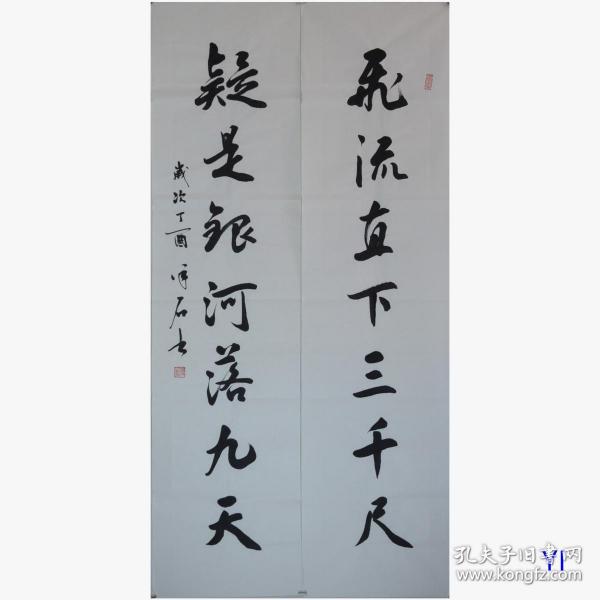 飛流直下三千尺
疑是銀河落九天
歲次丁酉
石书
孔夫子旧書网
www.kongfz.com